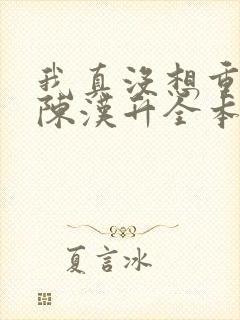 我真没想重
陈漢升全本
夏言冰